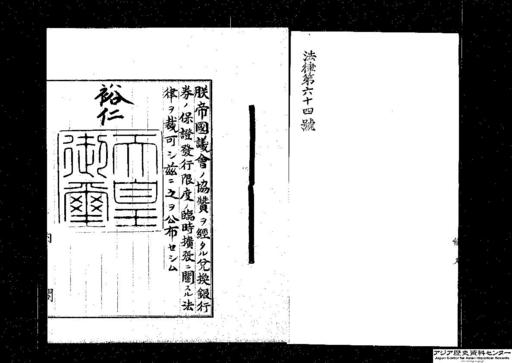 法律第六十四號
朕帝國議會ノ協贊ヲ經タル兌換銀行
券ノ保證發行限度ノ臨時擴張ニ關スル法
律ヲ裁可シ茲ニ之ヲ公布セシム
裕仁
天皇
御璽
内
閣
アジア歴史資料センター
Japan Center for Asian Historical Records